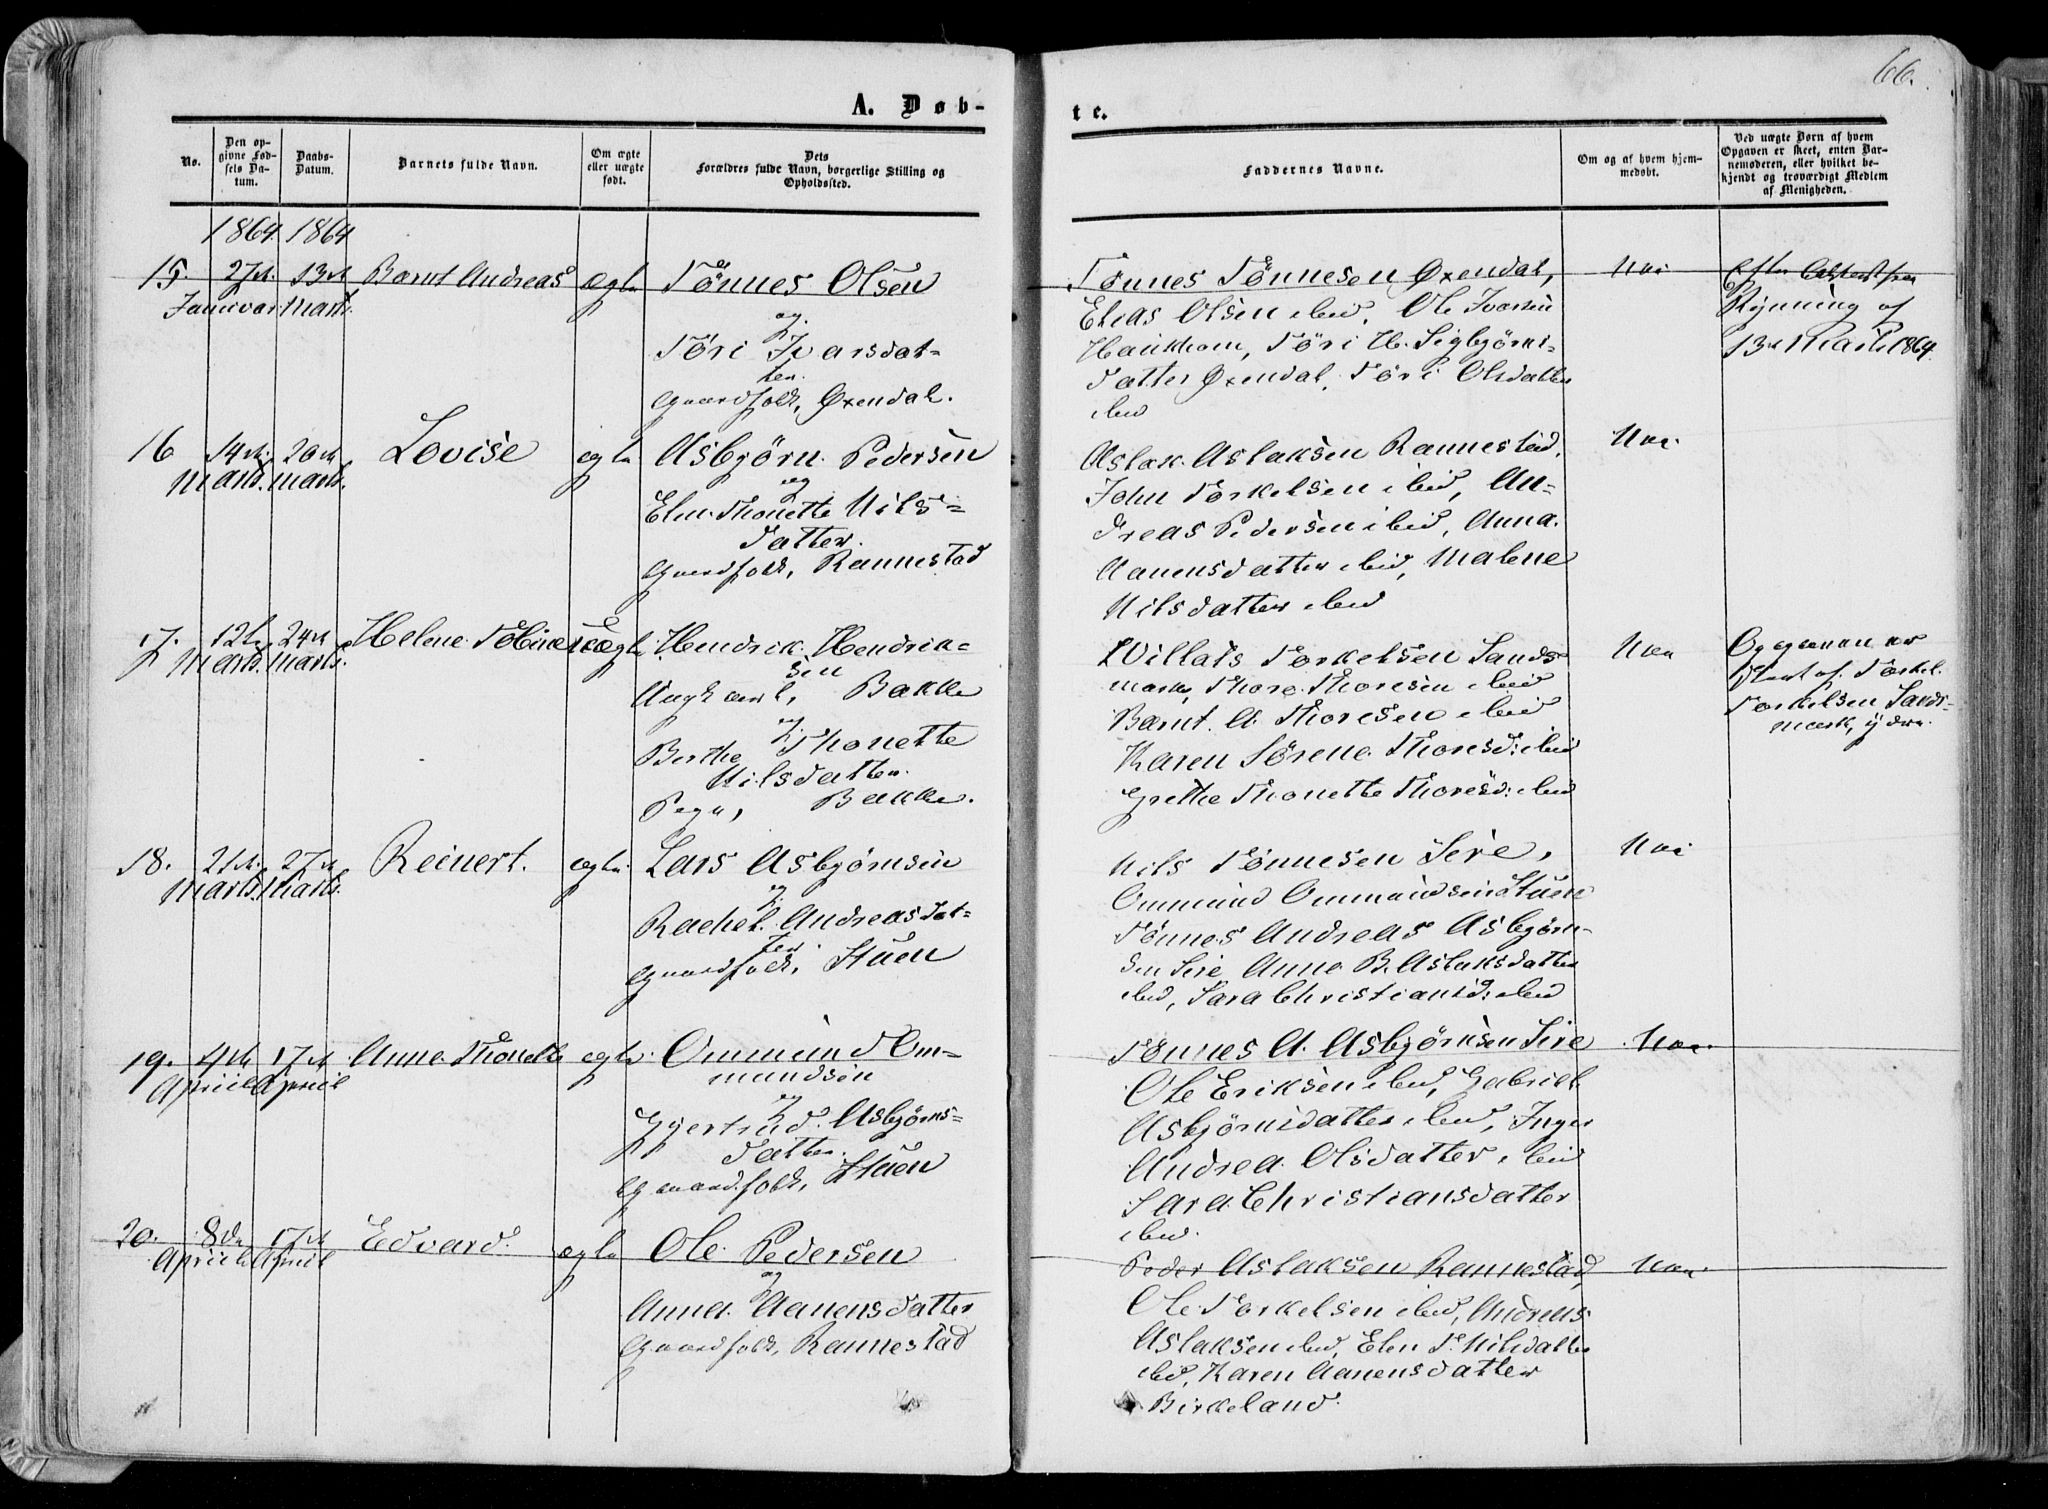 66.
A. Døb-
te.
No.
Den op-
givne Fød-
sels Da-
tum.
Daabs-
Datum.
Barnets fulde Navn.
Om ægte
eller uægte
født.
Dets
Forældres fulde Navn, borgerlige Stilling og
Opholdssted.
Faddernes Navne.
Om og af hvem hjem-
medøbt.
Ved uægte Børn af hvem
Opgaven er skeet, enten Bar-
nemoderen, eller hvilket be-
kjendt og troværdigt Medlem
af Menigheden.
1864 1864
15. 27de 13de Barnt Andreas ægte Tönnes Olsen
Januar Marts.
og
Töri Ivarsdat-
ter.
Gaardfolk, Øxendal.
Tönnes Tönnesen Øxendal,
Elias Olsen ibid, Ole Ivarsen
Haukhom, Töri H. Sigbjörns-
datter Øxendal, Töri Olsdatter
ibid
Nei
Efter Attest fra
13de Marts 1864.
16 14de 20de Lovise ægte Asbjörn Pedersen
Marts. Marts.
og
Elen Thonette Nils-
datter.
Gaardfolk, Rannestad
Aslak Aslaksen Rannestad,
John Torkelsen ibid, An-
dreas Pedersen ibid, Anna
Aanensdatter ibid, Malene
Nilsdatter ibid
Nei.
17. 12te 24de Helene Tobine uægte Hendrik Hendrik-
sen
Marts. Marts.
Ungkarl, Bakke
og
Berthe Thonette
Nilsdatter.
Pige, Bakke.
Willats Torkelsen Sands-
mark, Thore Thoresen ibid
Barnt A. Thoresen ibid
Karen Sörene Thoresd: ibid
Grethe Thonette Thoresd: ibid
Nei
Opgaven er
skeet af Torkel
Torkelsen Sands-
mark, ydre.
18. 21de 27de Reinert. ægte Lars Asbjörnsen
Marts. Marts.
og
Rachel Andreasdat-
ter.
Gaardfolk, Stuen
Nils Tönnesen Sire,
Ommund Ommundsen Stuen
Tönnes Andreas Asbjörn-
sen Sire, Anne B. Aslaksdatter
ibid, Sara Christiansd: ibid
Nei
19. 4de 17de Anne Thonette ægte Ommund Om-
mundsen
April April
og
Gjertrud Asbjörns-
datter.
Gaardfolk, Stuen
Tönnes A. Asbjörnsen Sire
Ole Eriksen ibid, Gabriel
Asbjörnsdatter ibid, Inger
Andrea Olsdatter ibid
Sara Christiansdatter
ibid.
Nei.
20. 8de 17de Edvard. ægte Ole Pedersen
April April
og
Anna Aanensdatter
Gaardfolk, Rannestad
Peder Aslaksen Rannestad,
Ole Torkelsen ibid, Andreas
Aslaksen ibid, Elen T. Nilsdatter
ibid, Karen Aanensdatter
Birkeland.
Nei.